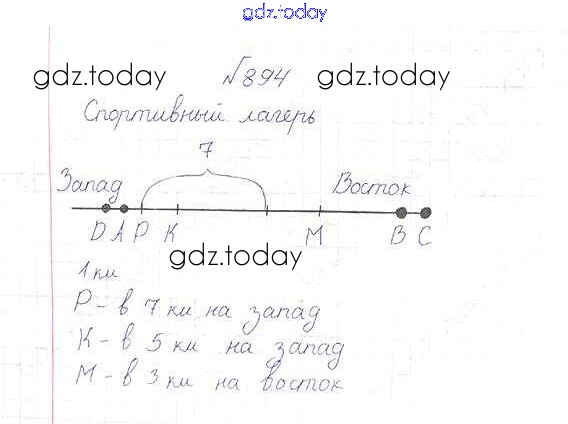 gdz.today
gdz.today №894 gdz.today
Спортивный лагерь
7
Запад Восток
D A P K M B C
gdz.today
1 км
P - в 7 км на запад
K - в 5 км на запад
M - в 3 км на восток